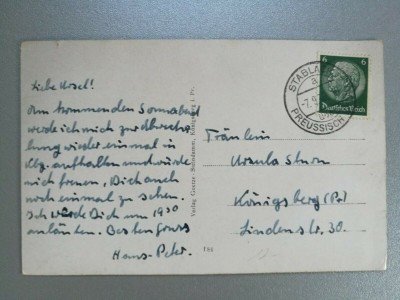 Liebe Uschel!
Am kommenden Sonnabend
werde ich mich zur Abschrei
bung wieder einmal in
Kbg. aufhalten und würde
mich freuen, Dich auch
noch einmal zu sehen.
Ich würde Dich um 1930
anläuten. Besten Gruss
Hans-Peter.
Verlag Gustav Königsberg i. Pr.
184
STABLA
PREUSSISCH
6 6
Deutsches Reich
Fräulein
Ursula Sturm
Königsberg (Pr)
Lindenstr. 30.